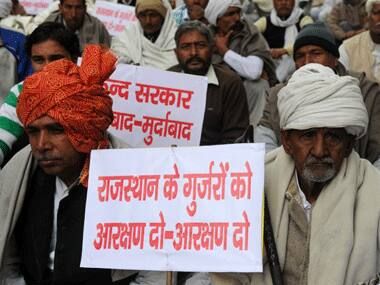 न्द सरकार
बाद-मुर्दाबाद
राजस्थान के गुर्जरों को
आरक्षण दो-आरक्षण दो